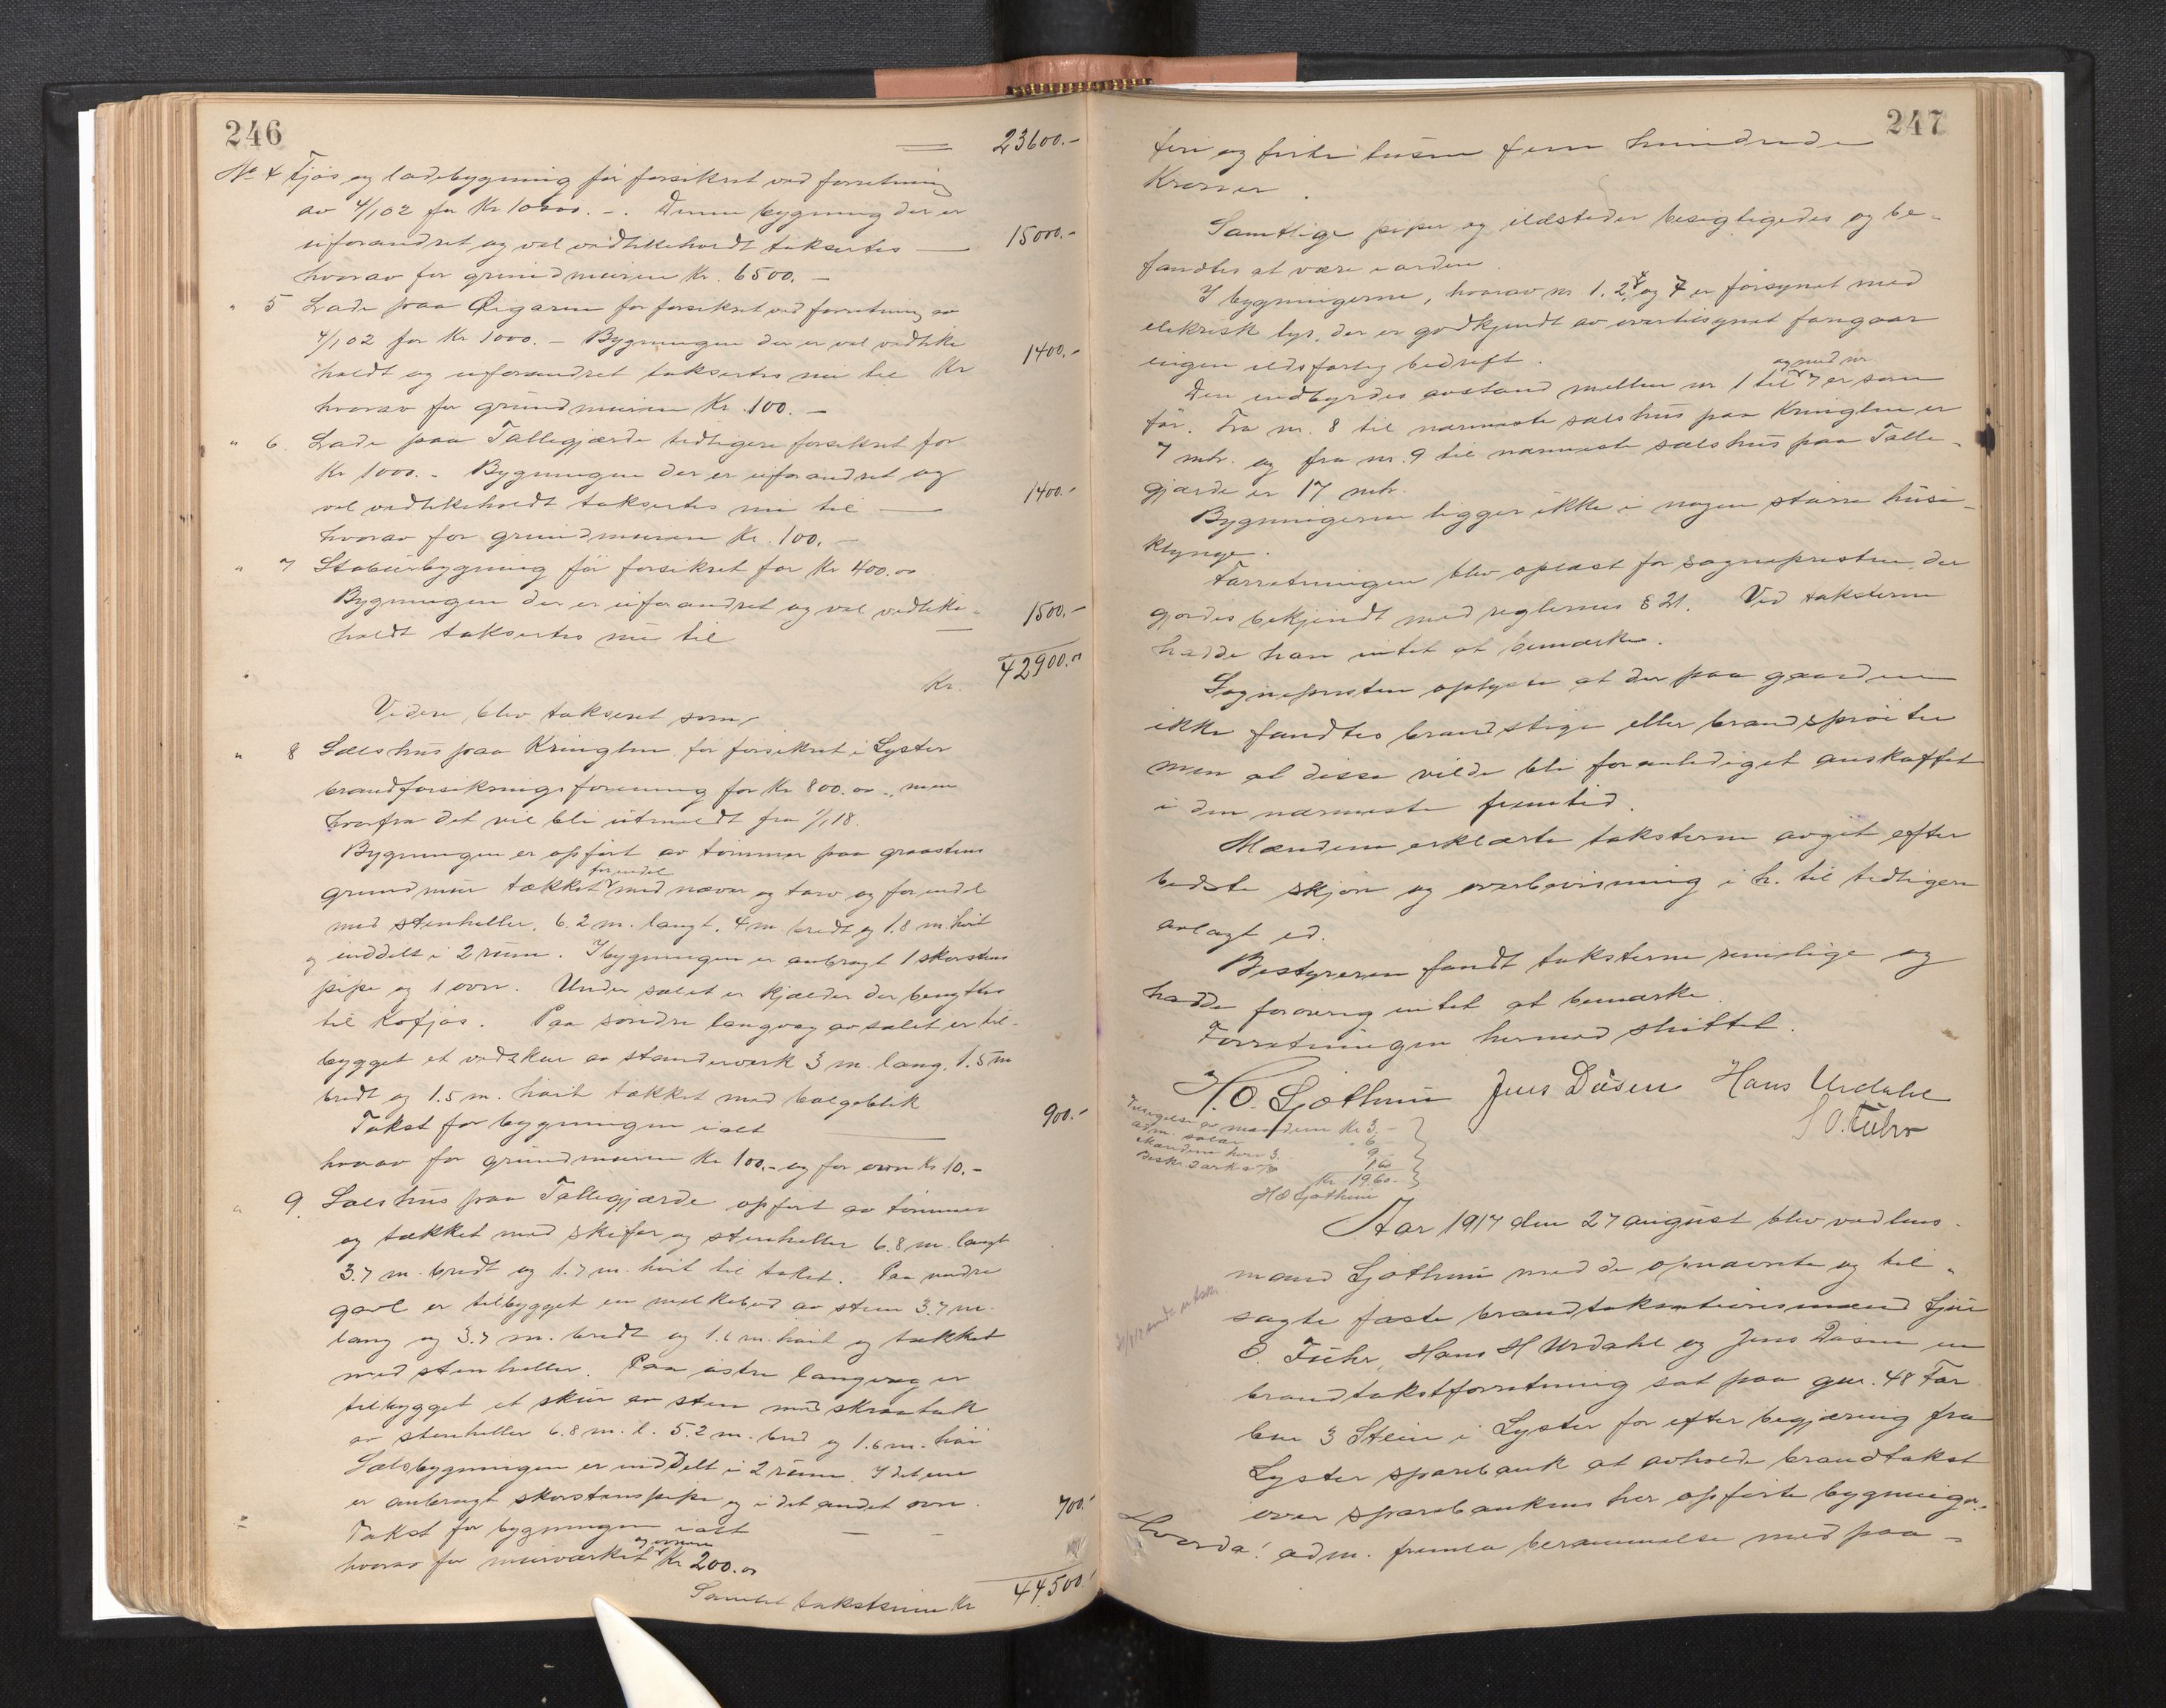 246
23600.-
No 4 Fjøs og ladebygning før forsikret ved forretning
av 4/1 02 for Kr 10000.-. Denne bygning der er
uforandret og vel vedlikeholdt taksertes — 15000.-
hvorav for grundmuren Kr. 6500.-
" 5 Lade paa Øigaren før forsikret ved forretning av
4/1 02 for Kr 1000.- Bygningen der er vel vedlike
holdt og uforandret taksertes nu til Kr 1400.-
hvorav for grundmuren Kr. 100.-
" 6 Lade paa Tallegjærde tidligere forsikret for
Kr 1000.- Bygningen der er uforandret og
vel vedlikeholdt taksertes nu til — 1400.-
hvorav for grundmuren Kr. 100.-
" 7 Stabursbygning før forsikret for Kr 400.00
Bygningen der er uforandret og vel vedlike-
holdt taksertes nu til — 1500.-
Kr. 42900.00
Videre blev takseret som
" 8 Sælshus paa Kringlen før forsikret i Lyster
brandforsikringsforening for Kr 800.00, men
hvorfra det vil bli utmeldt fra 1/1 18.
Bygningen er opført av tømmer paa graastens
grundmur tækket for endel med næver og torv og for endel
med stenheller, 6.2 m. langt, 4 m bredt og 1.8 m. høit
og inddelt i 2 rum. I bygningen er anbragt 1 skorstens
pipe og 1 ovn. Under sælet er kjælder der benyttes
til kofjøs. Paa søndre langvæg av sælet er til-
bygget et vedskur av standerverk 3 m. lang, 1.5 m
bredt og 1.5 m. høit tækket med bølgeblik
Takst for bygningen ialt — 900.-
hvorav for grundmuren Kr 100.- og for ovn Kr 10.-
" 9. Sælshus paa Tallegjærde opført av tømmer
og tækket med skifer og stenheller 6.8 m. langt
3.7 m. bredt og 1.7 m. høit til taket. Paa nordre
gavl er tilbygget en melkebod av sten 3.7 m.
lang og 3.7 m. bredt og 1.6 m. høit og tækket
med stenheller. Paa østre langvæg er
tilbygget et skur av sten med skraatak
av stenheller 6.8 m. l. 5.2 m. bred og 1.6 m. høi
Sælsbygningen er inddelt i 2 rum. I det ene
er anbragt skorstenspipe og i det andet ovn.
Takst for bygningen ialt — — 700.-
hvorav for murværket og ovnen Kr 200.00
Samlet takstsum Kr 44500.-
247
fire og firti tusen fem hundrede
Kroner.
Samtlige piper og ildsteder besigtigedes og be-
fandtes at være i orden.
I bygningerne, hvorav nr 1. 2, 4 og 7 er forsynet med
elektrisk lys, der er godkjendt av overtilsynet foregaar
ingen ildsfarlig bedrift.
Den indbyrdes avstand mellem nr 1 til og med nr. 7 er som
før. Fra nr. 8 til nærmeste sælshus paa Kringlen er
7 mtr. og fra nr. 9 til nærmeste sælshus paa Talle-
gjærde er 17 mtr.
Bygningerne ligger ikke i nogen større huse-
klynge.
Forretningen blev oplæst for sognepresten, der
gjordes bekjendt med reglernes § 21. Ved taksterne
hadde han intet at bemerke.
Sognepresten oplyste at der paa gaarden
ikke fandtes brandstige eller brandsprøiter
men at disse vilde bli foranlediget anskaffet
i den nærmeste fremtid.
Mændene erklærte taksterne avgit efter
bedste skjøn og overbevisning i h. til tidligere
avlagt ed.
Bestyreren fandt taksterne rimelige og
hadde forøvrig intet at bemerke.
Forretningen hermed sluttet.
H.O. Sjøthun Jens Døsen Hans Urdahl
S O. Fuhr
Tilsigelse av mændene Kr 3.-
adm. salær " 6.-
Mændene hver 3. 9.-
Beskr. 1.60
Kr 19.60.-
HO Sjøthun
Aar 1917 den 27 august blev ved lens-
mand Sjøthun med de opnævnte og til-
sagte faste brandtakstationsmænd Sjur
O. Fuhr, Hans H Urdahl og Jens Døsen en
brandtakstforretning sat paa gnr. 48 Far
bnr 3 Stein i Lyster for efter begjæring fra
Lyster sparebank at avholde brandtakst
over sparebankens her opførte bygninger.
Hvorda! adm. fremla berammelse med paa-